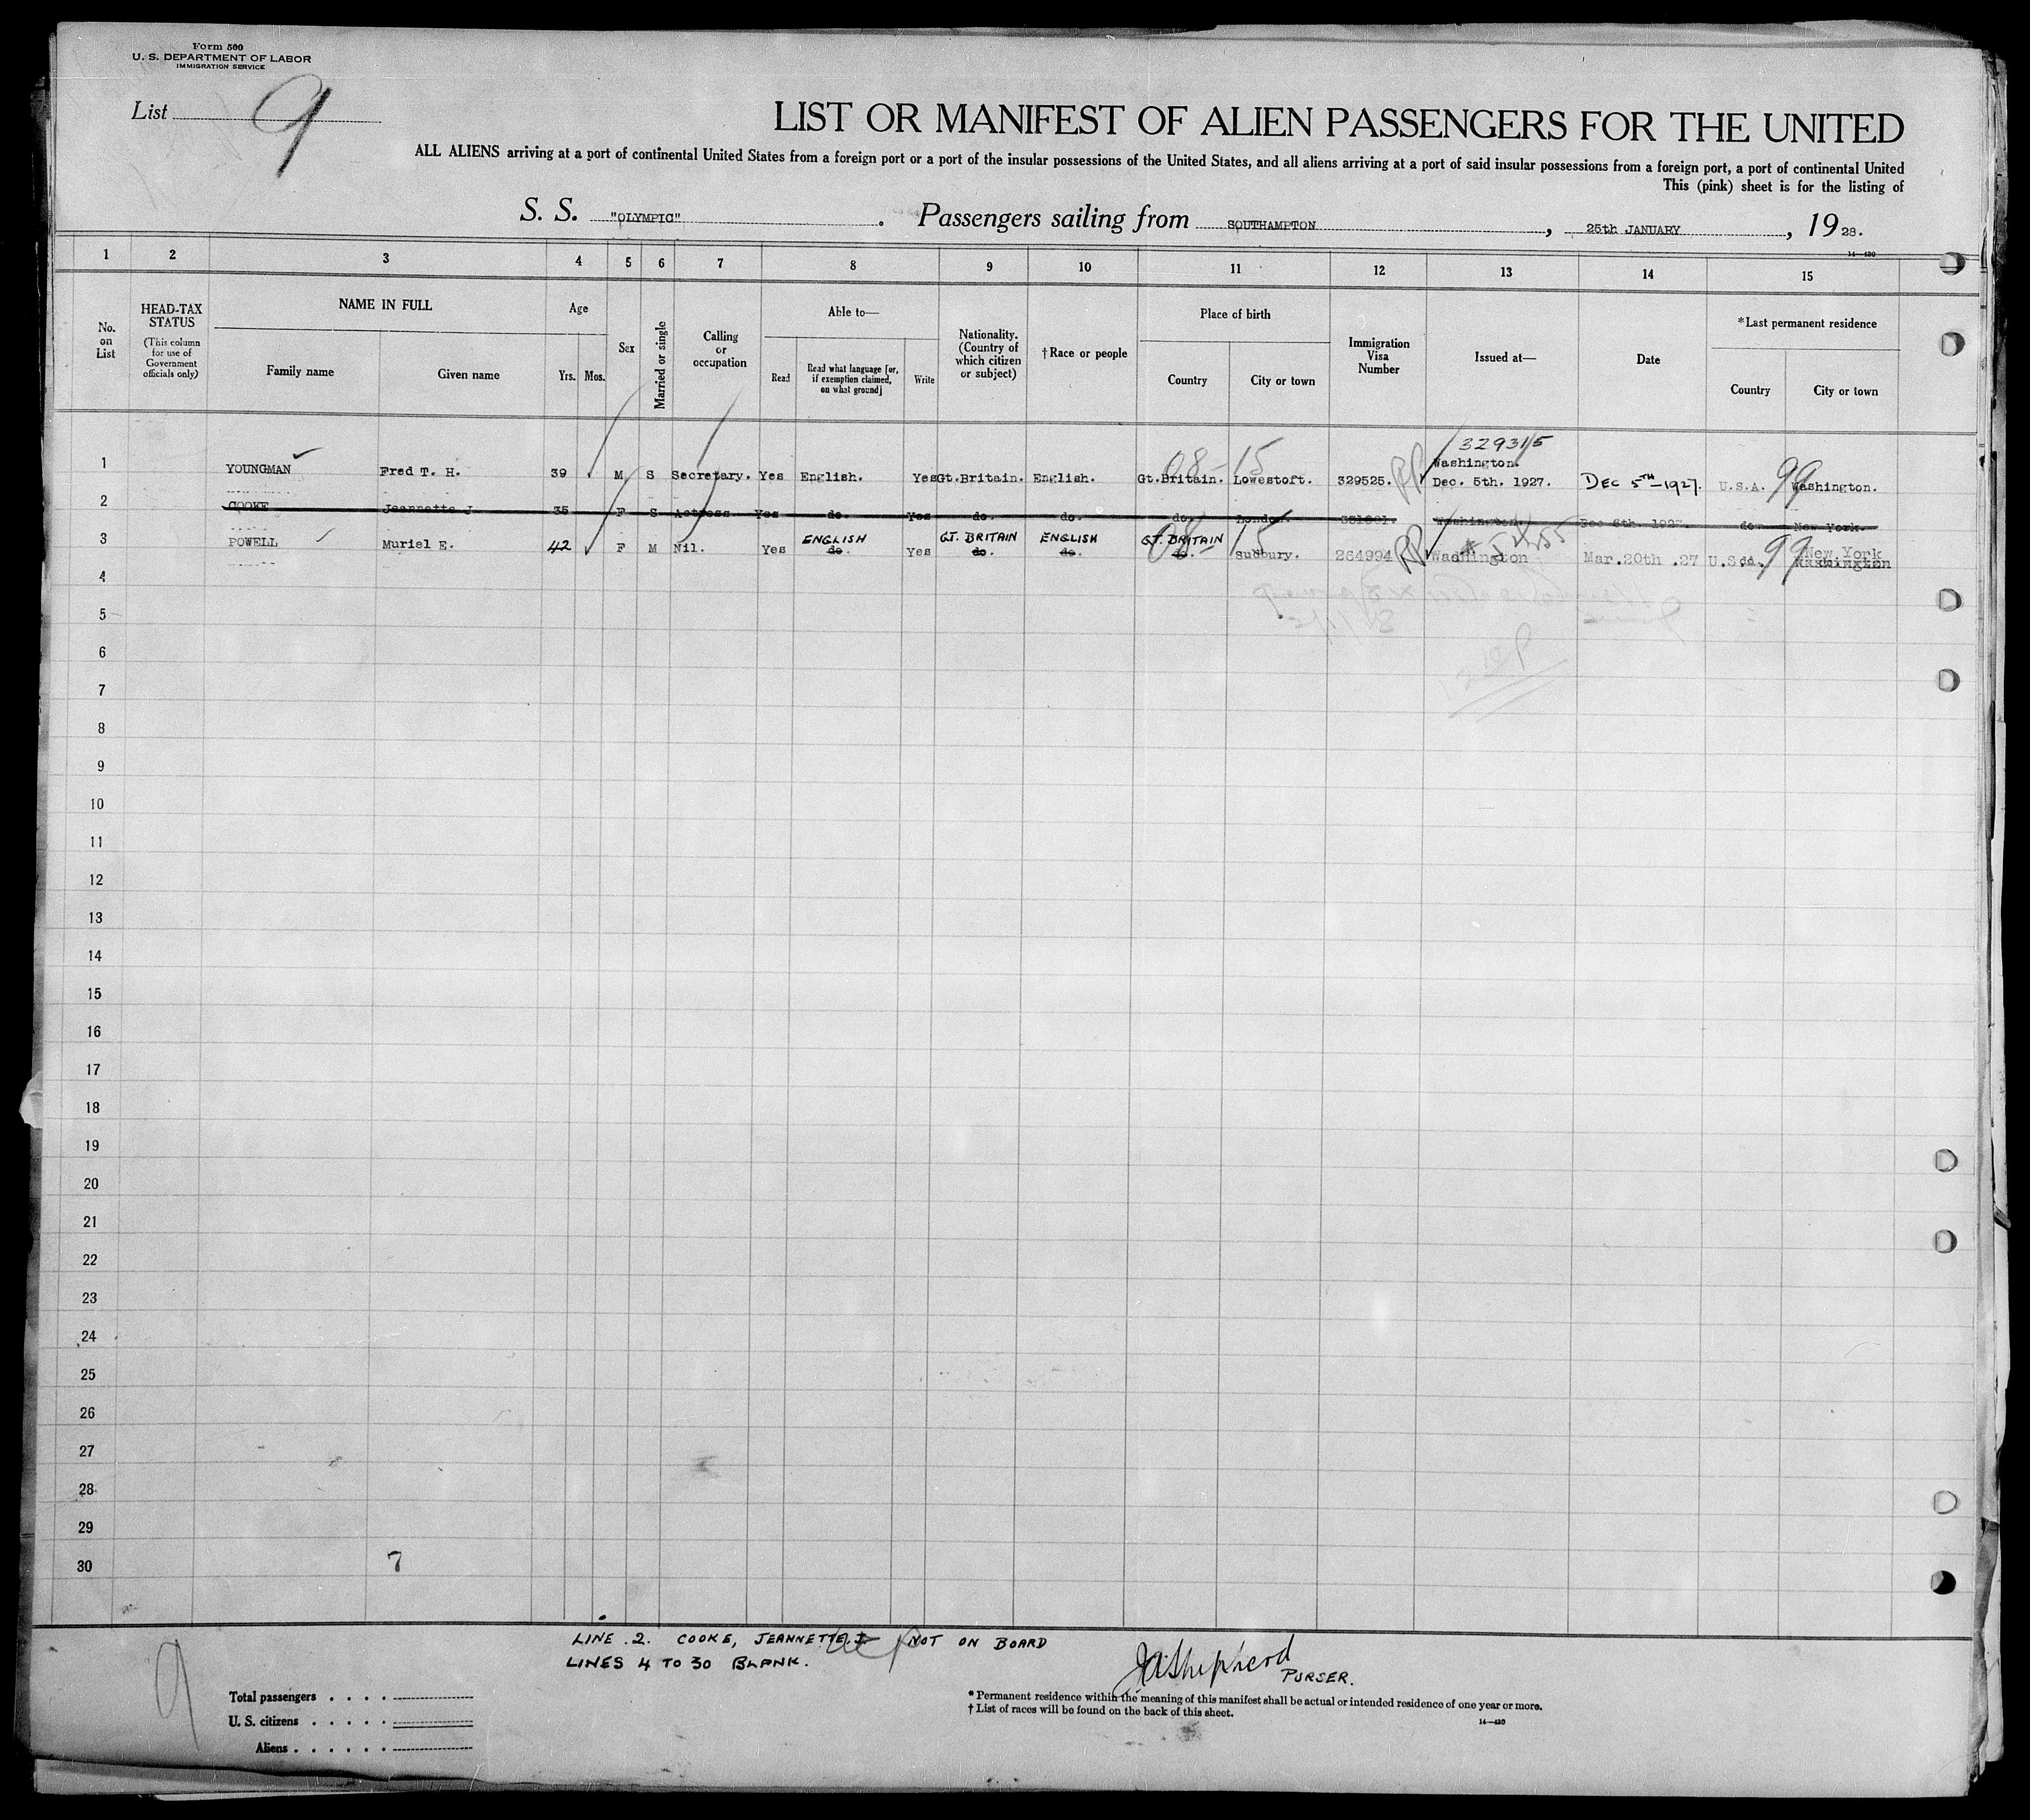 Form 500
U. S. DEPARTMENT OF LABOR
IMMIGRATION SERVICE
List 9
LIST OR MANIFEST OF ALIEN PASSENGERS FOR THE UNITED
ALL ALIENS arriving at a port of continental United States from a foreign port or a port of the insular possessions of the United States, and all aliens arriving at a port of said insular possessions from a foreign port, a port of continental United
This (pink) sheet is for the listing of
S. S. "OLYMPIC". Passengers sailing from SOUTHAMPTON, 25th JANUARY, 19 28.
14—430
1 2 3 4 5 6 7 8 9 10 11 12 13 14 15
No. on List
HEAD-TAX STATUS
(This column for use of Government officials only)
NAME IN FULL
Family name Given name
Age
Yrs. Mos.
Sex
Married or single
Calling or occupation
Able to—
Read
Read what language [or, if exemption claimed, on what ground]
Write
Nationality. (Country of which citizen or subject)
†Race or people
Place of birth
Country City or town
Immigration Visa Number
Issued at—
Date
*Last permanent residence
Country City or town
329315
1 YOUNGMAN Fred T. H. 39 M S Secretary. Yes English. Yes Gt.Britain. English. Gt.Britain. Lowestoft. 329525. Washington. Dec. 5th. 1927. DEC 5TH-1927. U.S.A. Washington.
08-15 99
2 COOKE Jeannette J 35 F S Actress Yes do. Yes do. do. do. London. Washington. do New York.
3 POWELL Muriel E. 42 F M Nil. Yes ENGLISH do. Yes GT. BRITAIN do. ENGLISH do. GT. BRITAIN do. Sudbury. 264994 Washington Mar.20th .27 U.S.A. do. New York Washington
08-15 99
4
5
6
7
8
9
10
11
12
13
14
15
16
17
18
19
20
21
22
23
24
25
26
27
28
29
30 7
LINE .2. COOKE, JEANNETTE.J. NOT ON BOARD
LINES 4 TO 30 BLANK.
JAShepherd
PURSER.
9
Total passengers . . . .
U. S. citizens . . . . .
Aliens . . . . . .
* Permanent residence within the meaning of this manifest shall be actual or intended residence of one year or more.
† List of races will be found on the back of this sheet.
14—430